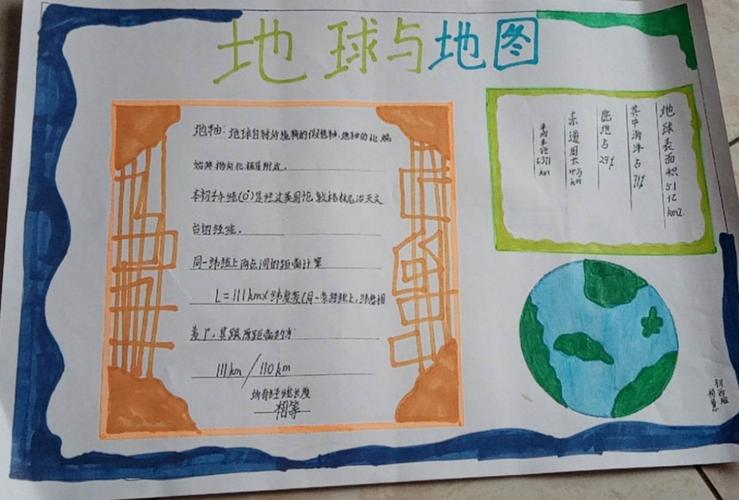 地球与地图
地轴：地球自转所绕转的假想轴，地轴的北端
始终指向北极星附近。
本初子午线(0°)是经过英国伦敦格林尼治天文
台的经线。
同一经线上两点间的距离计算
L=111km×纬度差(同一条经线上,纬度相
差1°,其
111km/110km
所有经线长度
相等
地球表面积5.1亿km2
其中海洋占71%
陆地占29%
赤道周长4万km
平均半径6371km